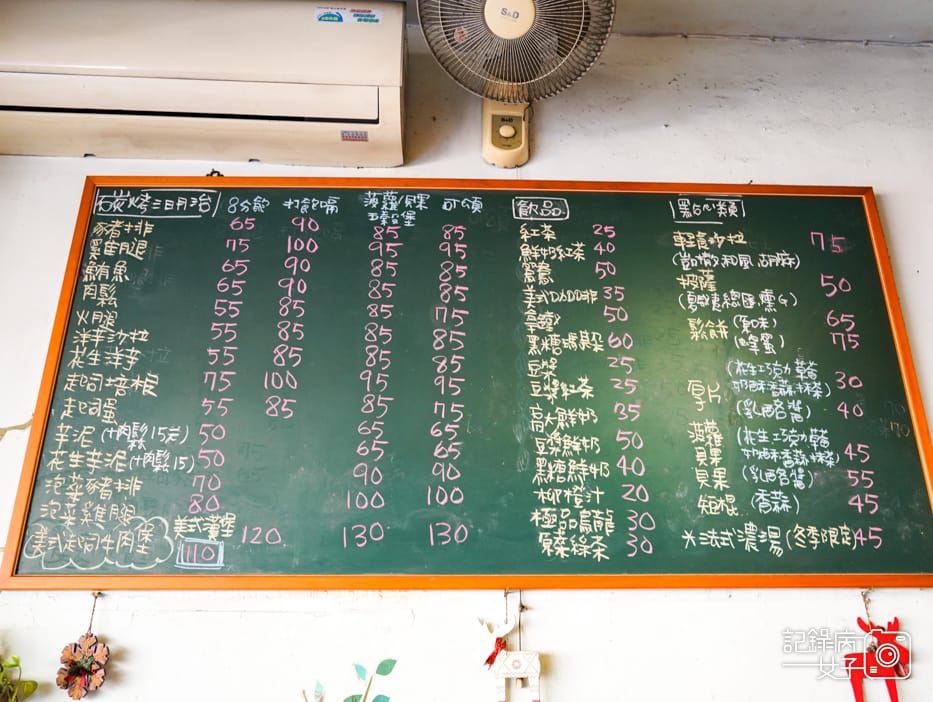 S&D
S&D
碳烤三明治 8分飽 打飽嗝 菠蘿/貝果 可頌
瑪芬堡
豬排 65 90 85 85
雞腿 75 100 95 95
鮪魚 65 90 85 85
肉鬆 65 90 85 85
火腿 55 85 85 75
洋芋沙拉 55 85 85 85
花生洋芋 55 85 85 85
起司培根 75 100 95 95
起司蛋 55 85 85 75
芋泥(+肉鬆15元) 50 65 65
花生芋泥(+肉鬆15) 50 65 65
泡菜豬排 70 90 90
泡菜雞腿 80 100 100
美式起司牛肉堡 美式漢堡 110 120 130 130
飲品
紅茶 25
鮮奶紅茶 40
鴛鴦 50
美式咖啡 35
拿鐵 50
黑糖瑪朵 60
豆漿 25
豆漿紅茶 25
高大鮮奶 35
豆漿鮮奶 50
黑糖鮮奶 40
柳橙汁 20
極品烏龍 30
原葉綠茶 30
點心類
輕食沙拉 75
(凱撒 和風 胡麻)
披薩 50
(夏威夷 總匯 燻G)
鬆餅 (原味) 65
(蜂蜜) 75
厚片 (花生 巧克力 草莓
奶酥 香蒜 抹茶) 30
(乳酪 醬) 40
菠蘿 (花生 巧克力 草莓
貝果 奶酥 香蒜 抹茶) 45
貝果 (乳酪醬) 55
短棍 (香蒜) 45
法式濃湯(冬季限定) 45
記錄病
女子